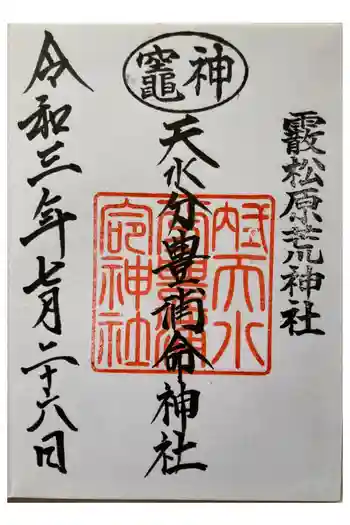 霰松原荒神社
竈神
天水分豊浦命神社
天水
命神社
令和三年七月二十六日